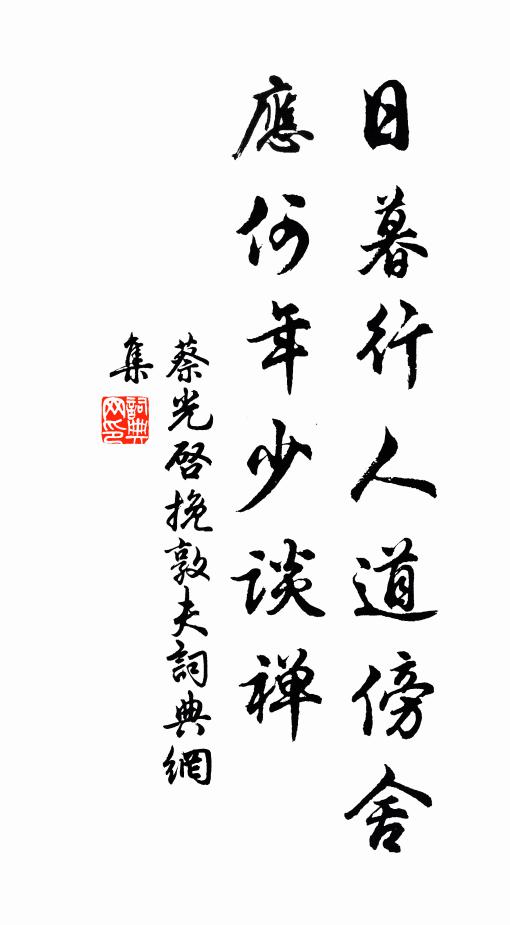 日暮行人道傍舍
應何年少談禅
蔡光啓挽敦夫詞典網
集
詞典網印